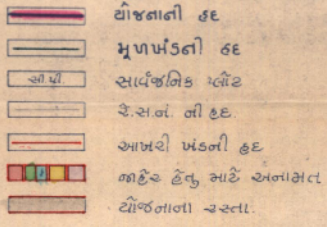 યોજનાની હદ
મૂળખંડની હદ
સી.પી. સાર્વજનિક પ્લોટ
રે.સ.નં. ની હદ.
આખરી ખંડની હદ
જાહેર હેતુ માટે અનામત
યોજનાના રસ્તા.